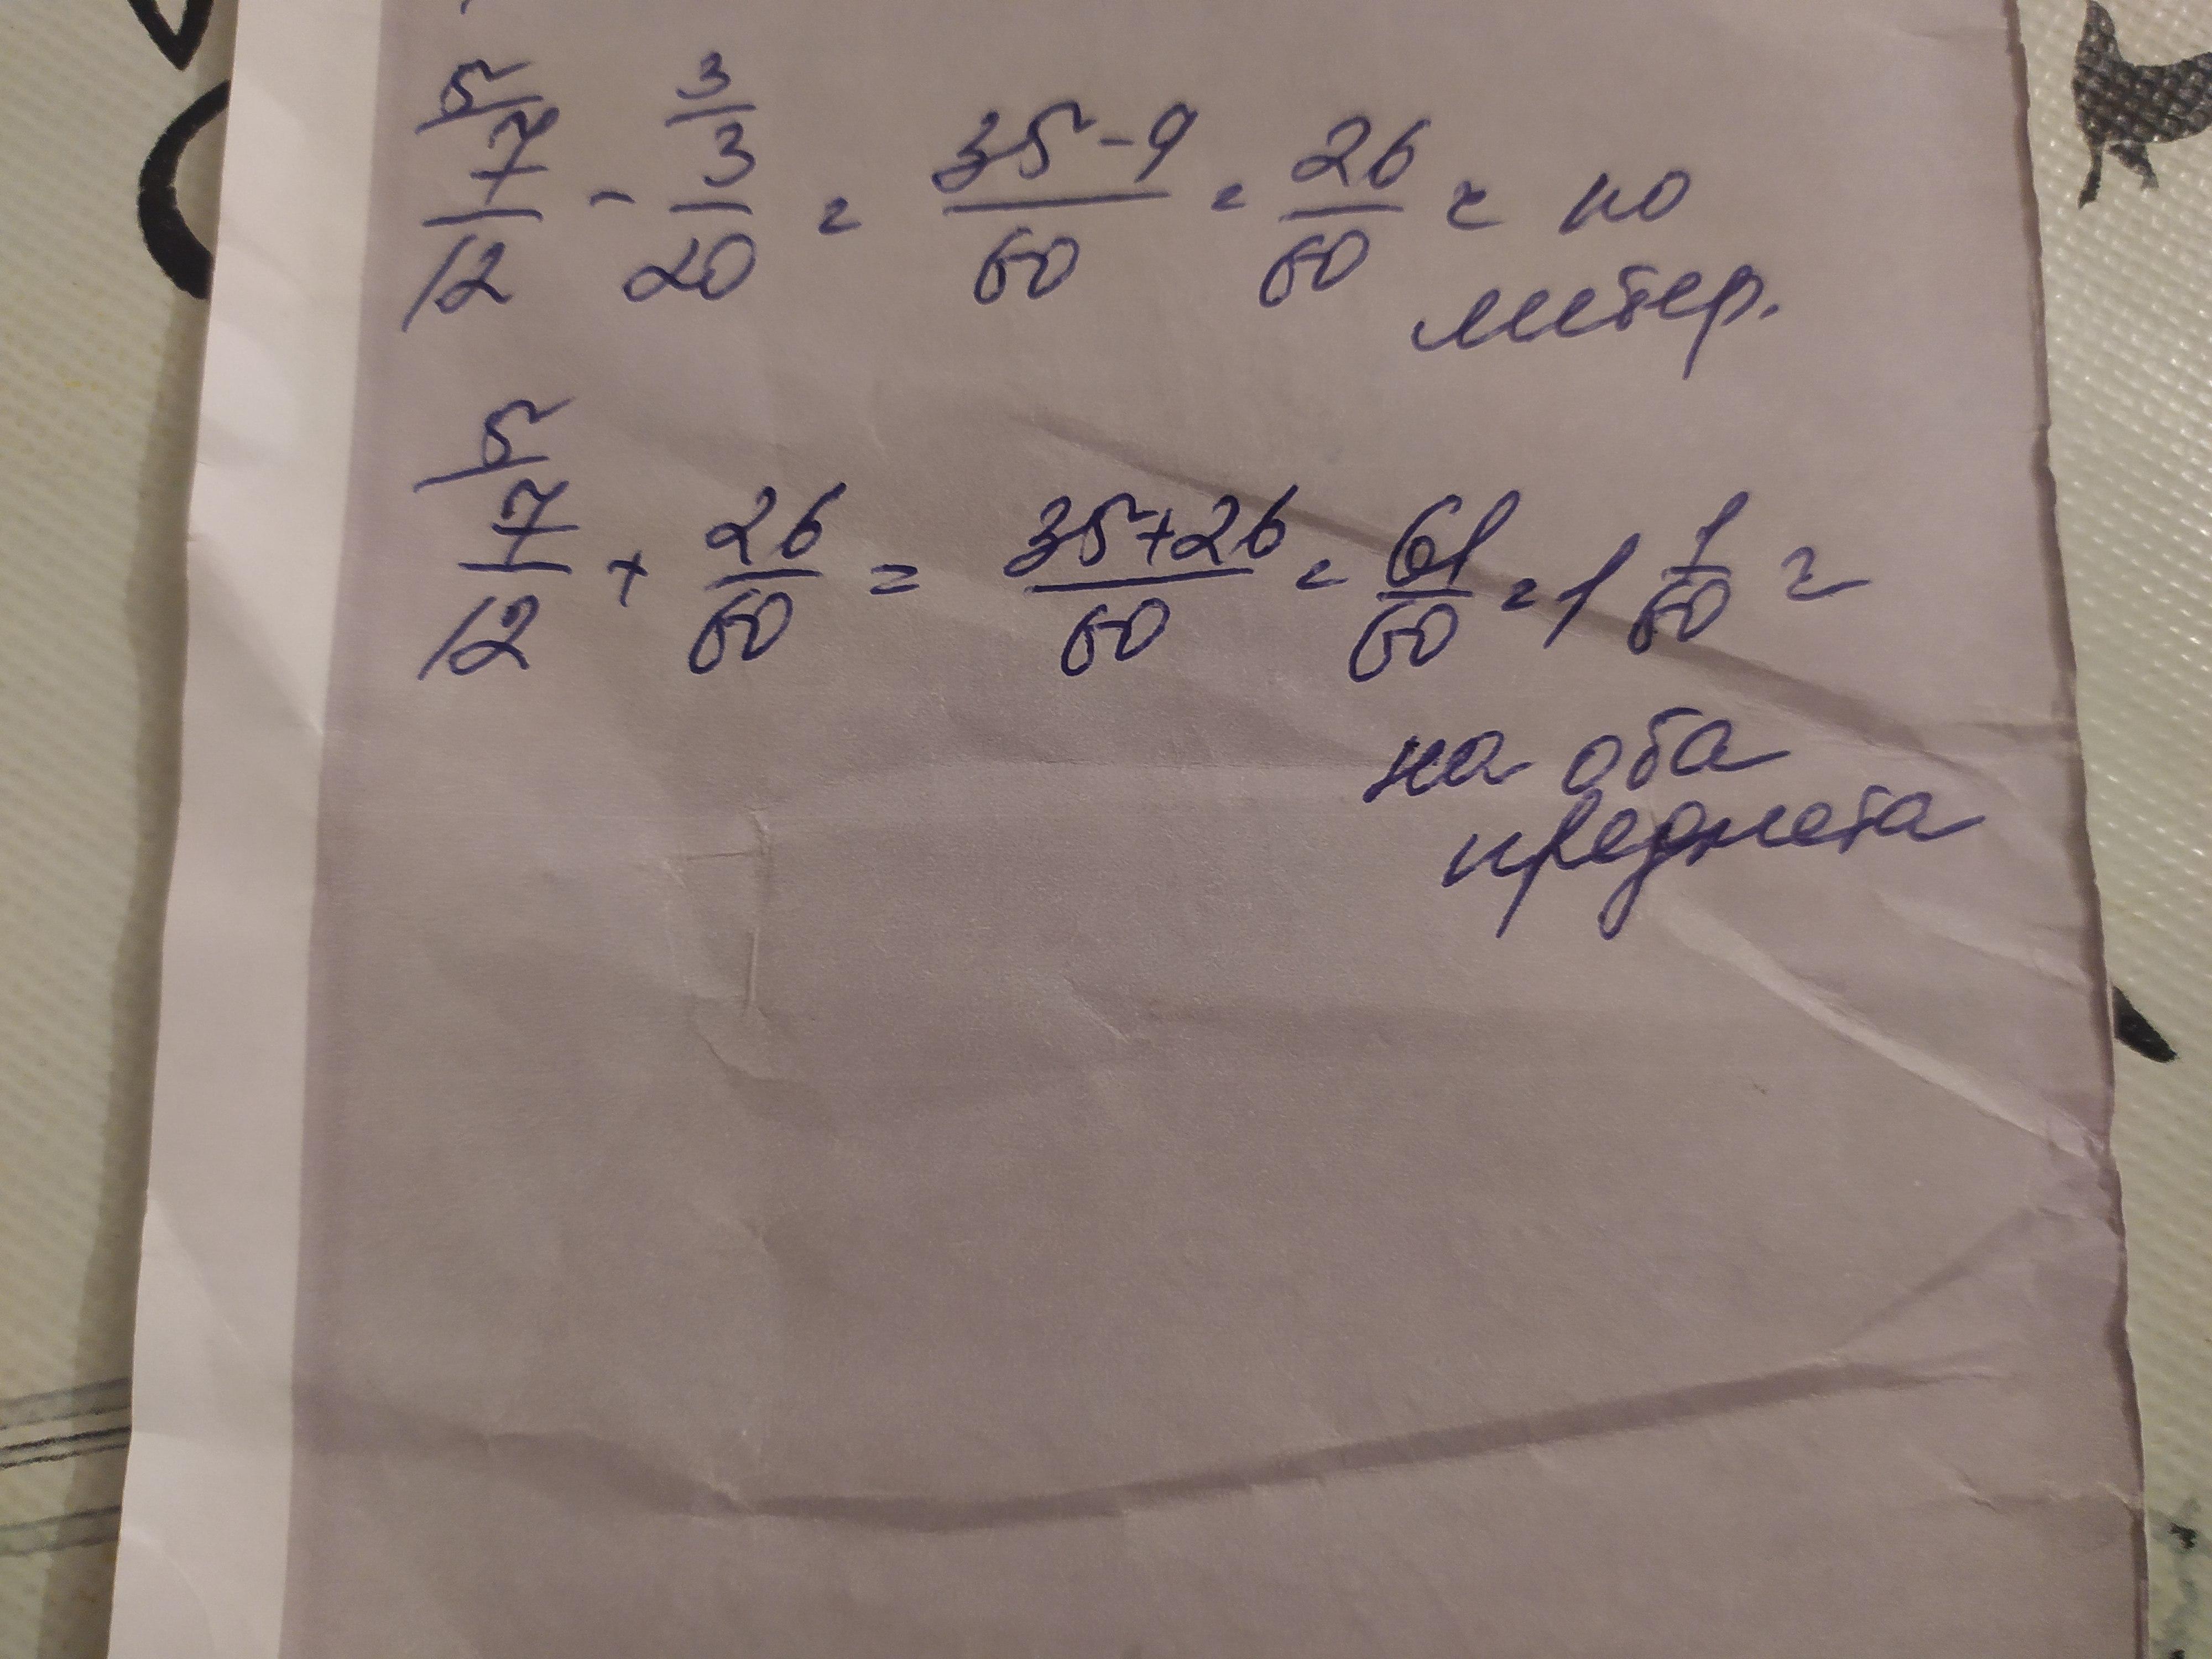 5/ 7/12 - 3/ 3/20 = 35-9/60 = 26/60 ч по
литер.
5/ 7/12 + 26/60 = 35+26/60 = 61/60 = 1 1/60 ч
на оба
предмета